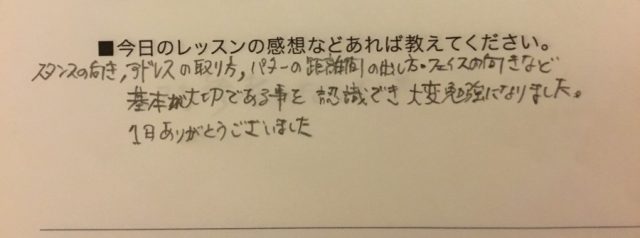 ■今日のレッスンの感想などあれば教えてください。
スタンスの向き,アドレスの取り方,パターの距離間の出し方・フェイスの向きなど
基本が大切である事を認識でき大変勉強になりました。
1日ありがとうございました